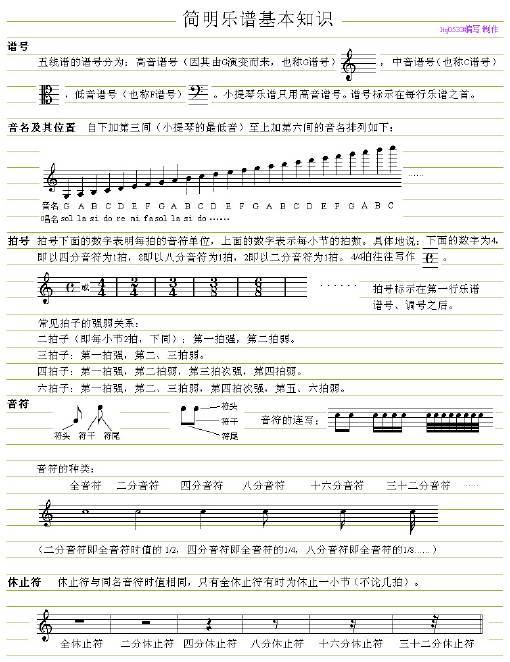 简明乐谱基本知识
hg0533编写 制作
谱号
五线谱的谱号分为：高音谱号（因其由G演变而来，也称G谱号）　，中音谱号（也称C谱号）
，低音谱号（也称F谱号）　。小提琴乐谱只用高音谱号。谱号标示在每行乐谱之首。
音名及其位置　自下加第三间（小提琴的最低音）至上加第六间的音名排列如下：
······
音名 G A B C D E F G A B C D E F G A B C D E F G A B C
唱名 sol la si do re mi fa sol la si do ······
拍号　拍号下面的数字表明每拍的音符单位，上面的数字表示每小节的拍数。具体地说：下面的数字为4，
即以四分音符为1拍，8即以八分音符为1拍，2即以二分音符为1拍。4/4拍往往写作　。
或 4/4 2/4 3/4 3/8 6/8 ······ 拍号标示在第一行乐谱
谱号、调号之后。
常见拍子的强弱关系：
二拍子（即每小节2拍，下同）：第一拍强，第二拍弱。
三拍子：第一拍强，第二、三拍弱。
四拍子：第一拍强，第二拍弱，第三拍次强，第四拍弱。
六拍子：第一拍强，第二、三拍弱，第四拍次强，第五、六拍弱。
音符
符头 符干 符尾
符头
符干
符尾
音符的连写：
音符的种类：
全音符　二分音符　四分音符　八分音符　十六分音符　三十二分音符 ·····
（二分音符即全音符时值的1/2，四分音符即全音符的1/4，八分音符即全音符的1/8.....）
休止符　休止符与同名音符时值相同，只有全休止符有时为休止一小节（不论几拍）。
全休止符　二分休止符　四分休止符　八分休止符　十六分休止符　三十二分休止符